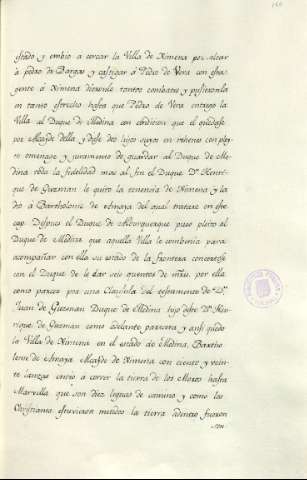 estado y embio a cercar la Villa de Ximena por echar
a pedro de Bargas y castigar a Pedro de Vera con esta
gente a Ximena dieronle tantos combates y pusieronla
en tanto estrecho hasta que Pedro de Vera entrego la
Villa al Duque de Medina con condicion que el quedase
por Alcayde della y dase dos hijos suyos en rehenes con pley
to omenage y juramento de guardar al Duque de Me-
dina toda la fidelidad mas al fin el Duque Dn Henrri-
que de Guzman le quito la tenencia de Ximena y la
dio a Bartholome de Amaya del qual tratare en este
cap. Despues el Duque de Alburquerque puso pleito al
Duque de Medina que aquella Villa le combenia para
acompañar con ello su estado de la frontera concertose
con el Duque de le dar seis quentos de mrs. por ella
como parece por una Clausula del testamento de Dn
Juan de Guzman Duque de Medina hijo deste Dn Hen-
rrique de Guzman como adelante parecera y ansi quedo
la Villa de Ximena en el estado de Medina. Bartho
lome de Amaya Alcayde de Ximena con ciento y vein-
te lanzas embio a correr la tierra de los Moros hasta
Marvella que son diez leguas de camino y como los
Christianos estuvieron metidos la tierra adentro fueron
sen-